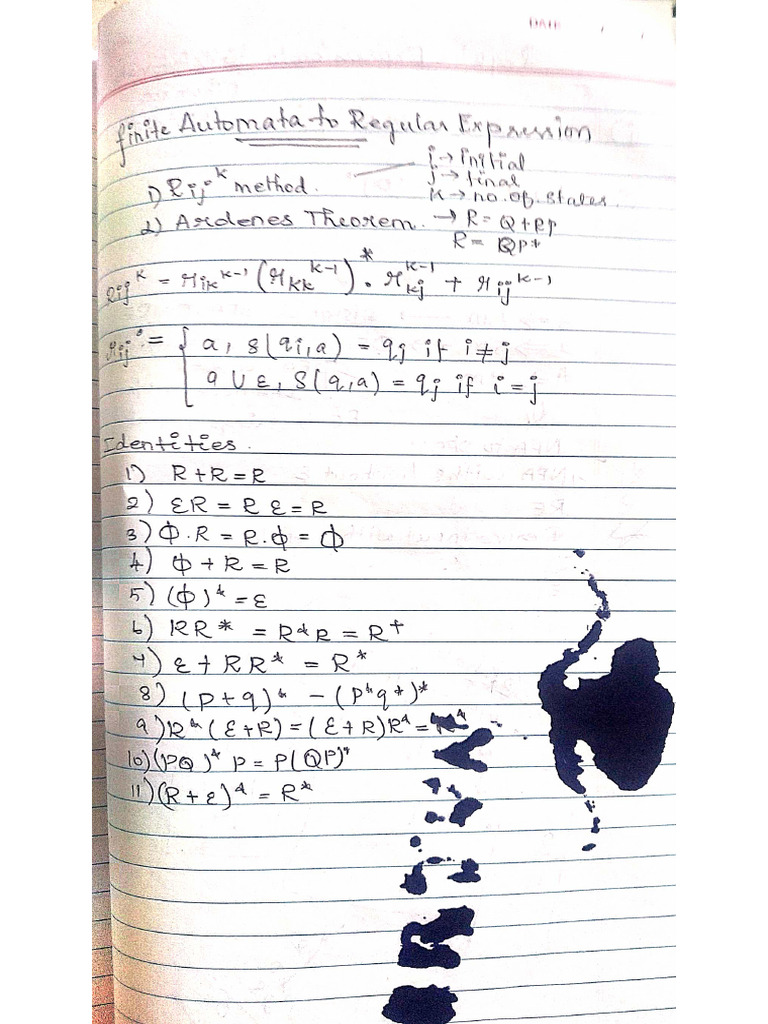 DATE / /
finite Automata to Regular Expression
i → initial
1) Rij^k method. j → final
k → no. of. states.
2) Ardenes Theorem. → R = Q + RP
R = QP*
Rij^k = rik^k-1 (rkk^k-1)* . rkj^k-1 + rij^k-1
rij° = { a, δ(qi, a) = qj if i ≠ j
a ∪ ε, δ(q, a) = qj if i = j
Identities.
1) R + R = R
2) εR = R ε = R
3) Φ . R = R . Φ = Φ
4) Φ + R = R
5) (Φ)* = ε
6) RR* = R*R = R+
7) ε + RR* = R*
8) (P + q)* - (P*q*)*
9) R* (ε + R) = (ε + R)R* = R*
10) (PQ)* P = P(QP)*
11) (R + ε)* = R*